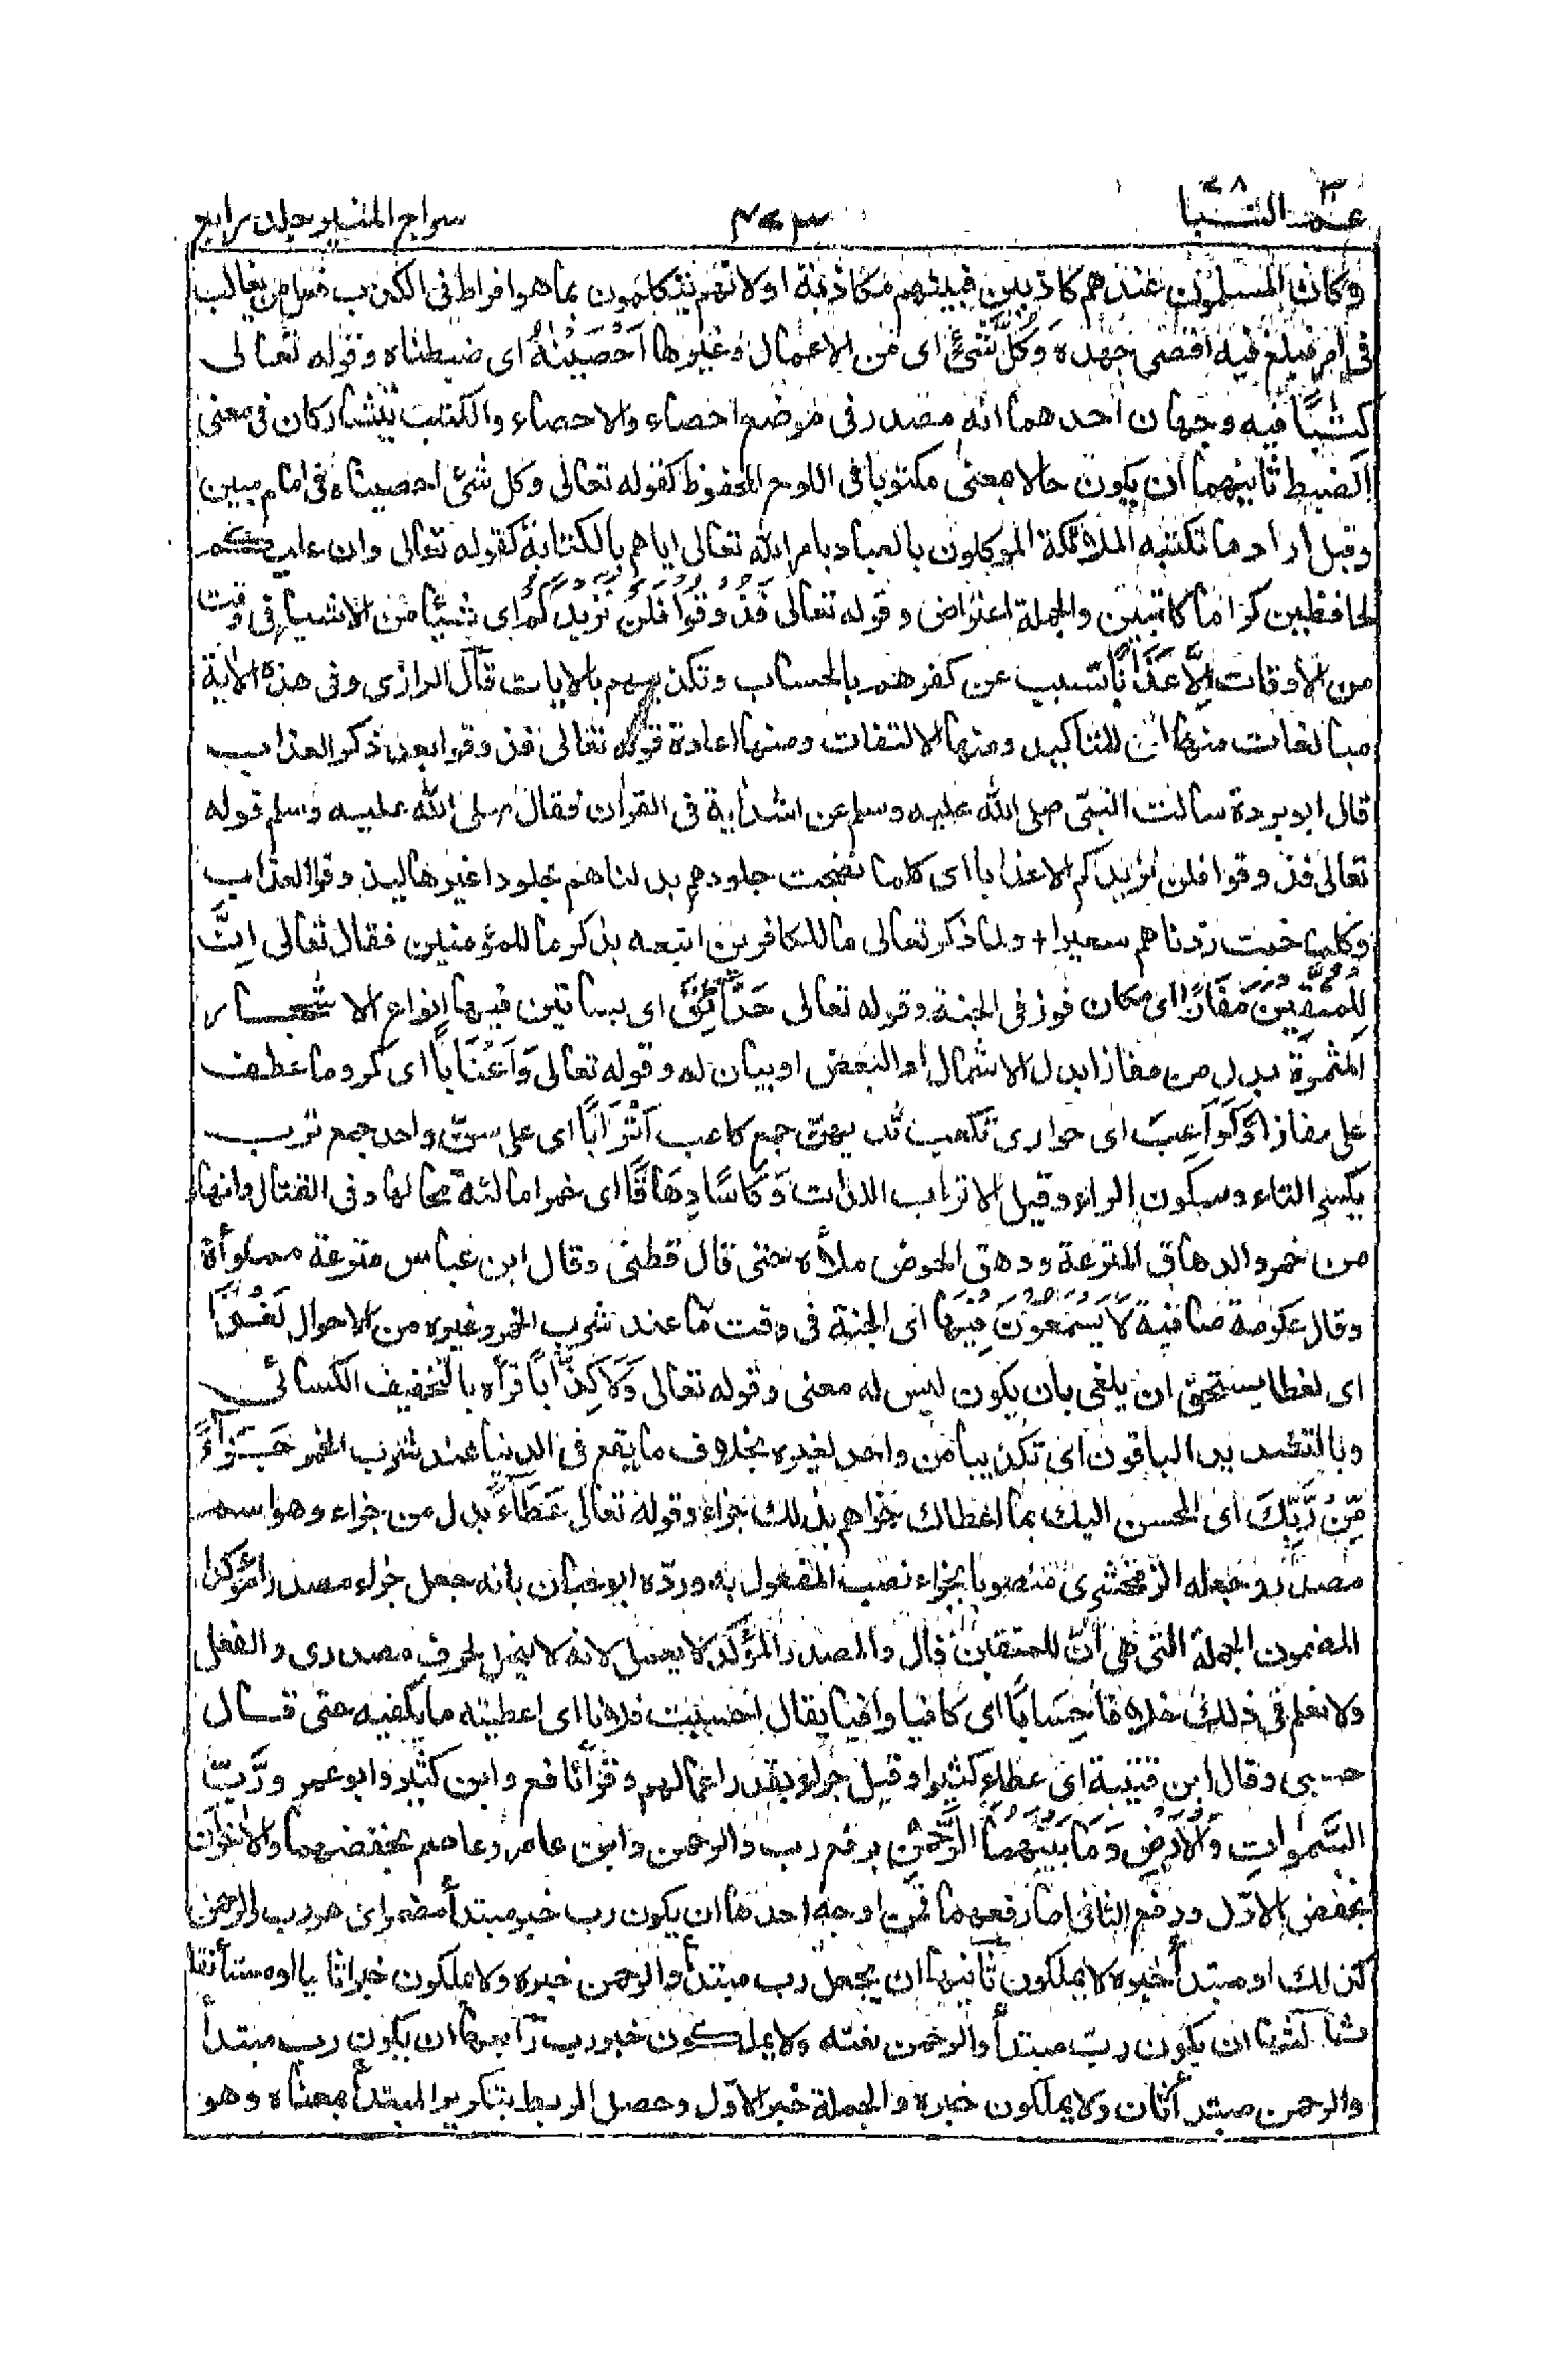 عم النبا ٧٨
٤٧٣
سراج المنير جلد رابع
وكان المسلمون عندهم كاذبين فبينهم مكاذبة اولانهم يتكلمون بما هو افراط فى الكذب فعل من يغالب
فى امر فيبلغ فيه اقصى جهده وَكُلَّ شَىْءٍ اى من الاعمال وغيرها اَحْصَيْنٰهُ اى ضبطناه وقوله تعالى
كِتٰبًا فيه وجهان احدهما انه مصدر فى موضع احصاء والاحصاء والكتب يتشاركان فى معنى
الضبط ثانيهما ان يكون حالا بمعنى مكتوبا فى اللوح المحفوظ كقوله تعالى وكل شئ احصيناه فى امام مبين
وقيل اراد ما تكتبه الملئكة الموكلون بالعباد بامر الله تعالى اياهم بالكتابة كقوله تعالى وان عليكم
لحافظين كراما كاتبين والجملة اعتراض وقوله تعالى فَذُوْقُوْا فَلَنْ نَّزِيْدَكُمْ اى شيئا من الاشياء فى وقت
من الاوقات اِلَّا عَذَابًا تسبب عن كفرهم بالحساب وتكذيبهم بالايات قال الرازى وفى هذه الاية
مبالغات منها لن للتاكيد ومنها الالتفات ومنها اعادة قوله تعالى فذوقوا بعد ذكر العذاب
قال ابو بردة سالت النبى صلى الله عليه وسلم عن اشد اية فى القران فقال صلى الله عليه وسلم قوله
تعالى فذوقوا فلن نزيدكم الا عذابا اى كلما نضجت جلودهم بدلناهم جلودا غيرها ليذوقوا العذاب
وكلما خبت زدناهم سعيرا + ولما ذكر تعالى ما للكافرين اتبعه بذكر ما للمؤمنين فقال تعالى اِنَّ
لِلْمُتَّقِيْنَ مَفَازًا اى مكان فوز فى الجنة وقوله تعالى حَدَآئِقَ اى بساتين فيها انواع الاشجار
المثمرة بدل من مفازا بدل الاشمال او البعض او بيان له وقوله تعالى وَاَعْنَابًا اى كروما عطف
على مفازا وَّكَوَاعِبَ اى جوارى تكعبت ثديهن جمع كاعب اَتْرَابًا اى على سن واحد جمع ترب
بكسر التاء وسكون الراء وقيل الاتراب اللدات وَّكَاْسًا دِهَاقًا اى خمرا مالئة محالها وفى القتال وانهار
من خمر والدهاق المترعة ودهق الحوض ملأه حتى قال قطنى وقال ابن عباس مترعة مملوأة
وقال عكرمة صافية لَا يَسْمَعُوْنَ فِيْهَا اى الجنة فى وقت ما عند شرب الخمر وغيره من الاحوال لَغْوًا
اى لغطا يستحق ان يلغى بان يكون ليس له معنى وقوله تعالى وَلَا كِذّٰبًا قرأه بالتخفيف الكسائى
وبالتشديد الباقون اى تكذيبا من واحد لغيره بخلاف ما يقع فى الدنيا عند شرب الخمر جَزَآءً
مِّنْ رَّبِّكَ اى المحسن اليك بما اعطاك جزاهم بذلك جزاء وقوله تعالى عَطَآءً بدل من جزاء وهو اسم
مصدر وجعله الزمخشرى منصوبا بجزاء نصب المفعول به ورده ابو حيان بانه جعل جزاء مصدرا مؤكدا
المضمون الجملة التى هى ان للمتقين قال والمصدر المؤكد لا يعمل لانه لا ينحل لحرف مصدرى والفعل
ولا نعلم فى ذلك خلافا حِسَابًا اى كافيا وافيا يقال احسبت فلانا اى اعطيته ما يكفيه حتى قال
حسبى وقال ابن قتيبة اى عطاء كثيرا وقيل جزاء بقدر اعمالهم وقرأ نافع وابن كثير وابو عمرو رَبُّ
السَّمٰوٰتِ وَالْاَرْضِ وَمَا بَيْنَهُمَا الرَّحْمٰنُ برفع رب والرحمن وابن عامر وعاصم بخفضهما والاخوان
بخفض الاوّل ورفع الثانى اما رفعهما فمن اوجه احدها ان يكون رب خبر مبتدأ مضمر اى هو رب والرحمن
كذلك او مبتدأ خبره لا يملكون ثانيها ان يجعل رب مبتدأ والرحمن خبره ولا يملكون خبرا ثانيا او مستأنفا
ثالثها ان يكون ربّ مبتدأ والرحمن نعته ولا يملكون خبر رب رابعها ان يكون رب مبتدأ
والرحمن مبتدأ ثان ولا يملكون خبره والجملة خبر الاوّل وحصل الربط بتكرير المبتدأ بمعناه وهو